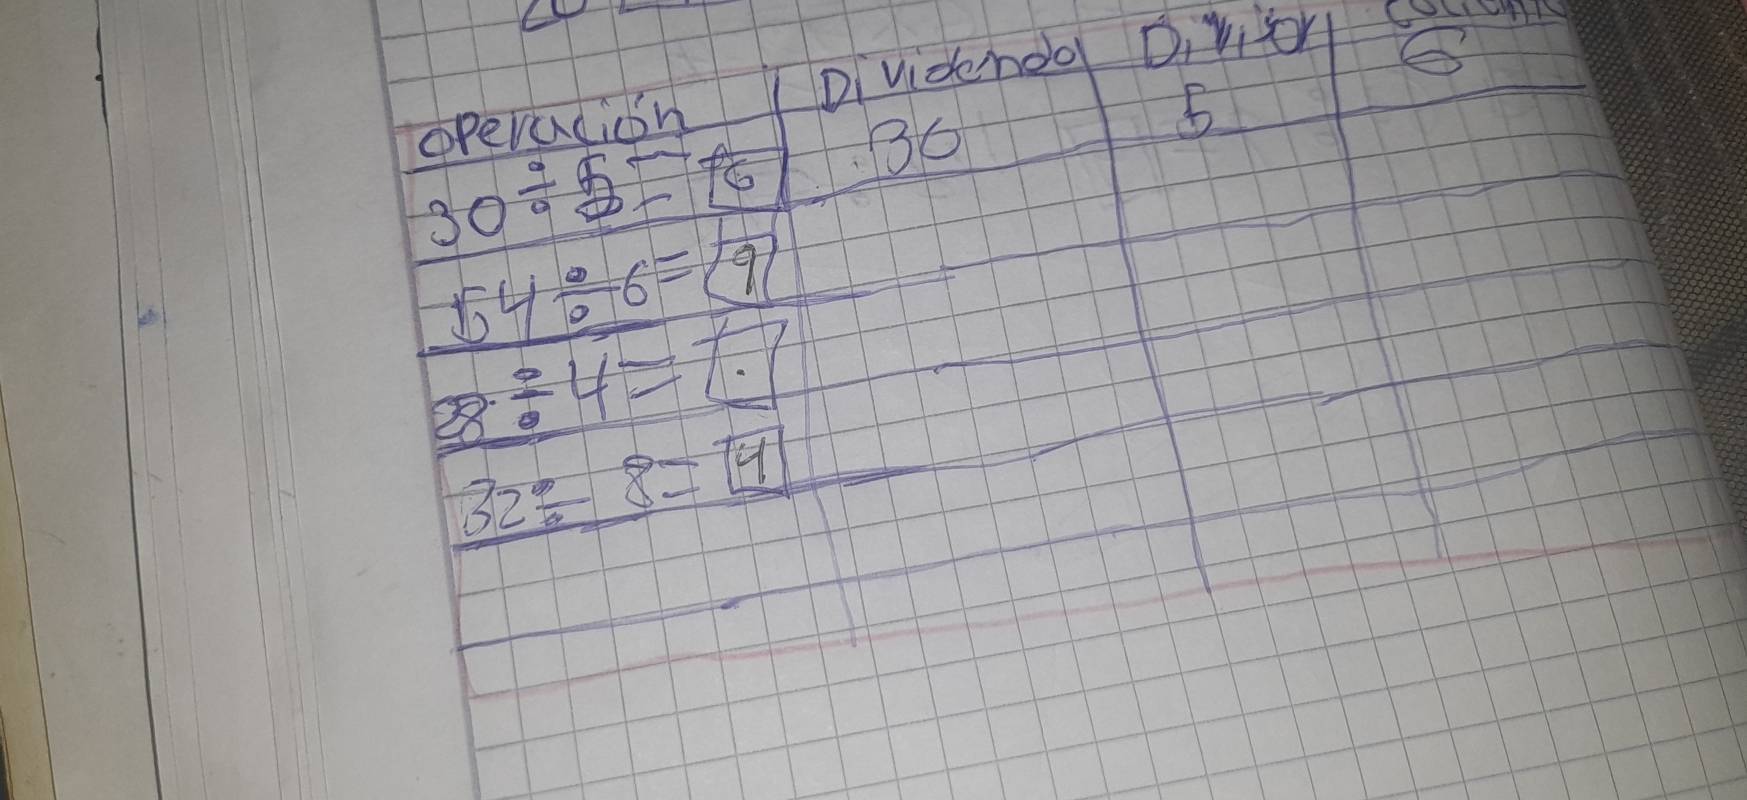 operación Dividendo Divisor
30 ÷ 5 = 6 30 5 6
54 ÷ 6 = 9
28 ÷ 4 =
32 ÷ 8 = 4